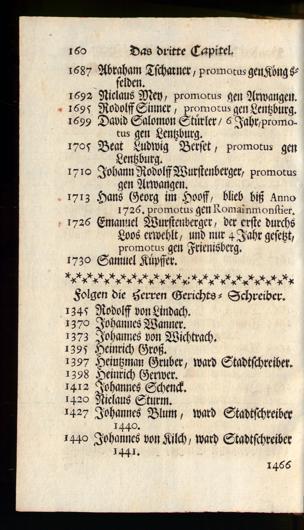 160 Das dritte Capitel.
1687 Abraham Tscharner, promotus gen Königs-
felden.
1692 Niclaus Mey, promotus gen Arwangen.
1695 Rodolff Sinner, promotus gen Lentzburg.
1699 David Salomon Stürler, 6 Jahr, promo-
tus gen Lentzburg.
1705 Beat Ludwig Berset, promotus gen
Lentzburg.
1710 Johann Rodolff Wurstenberger, promotus
gen Arwangen.
1713 Hans Georg im Hooff, blieb biß Anno
1726. promotus gen Romainmonstier.
1726 Emanuel Wurstenberger, der erste durchs
Loos erwehlt, und nur 4 Jahr gesetzt,
promotus gen Frienisberg.
1730 Samuel Küpffer.
Folgen die Herren Gerichts-Schreiber.
1345 Rodolff von Lindach.
1370 Johannes Wanner.
1373 Johannes von Wichtrach.
1395 Heinrich Groß.
1397 Heintzman Gruber, ward Stadtschreiber.
1398 Heinrich Gerwer.
1412 Johannes Schenck.
1420 Niclaus Sturm.
1427 Johannes Blum, ward Stadtschreiber
1440.
1440 Johannes von Kilch, ward Stadtschreiber
1441.
1466